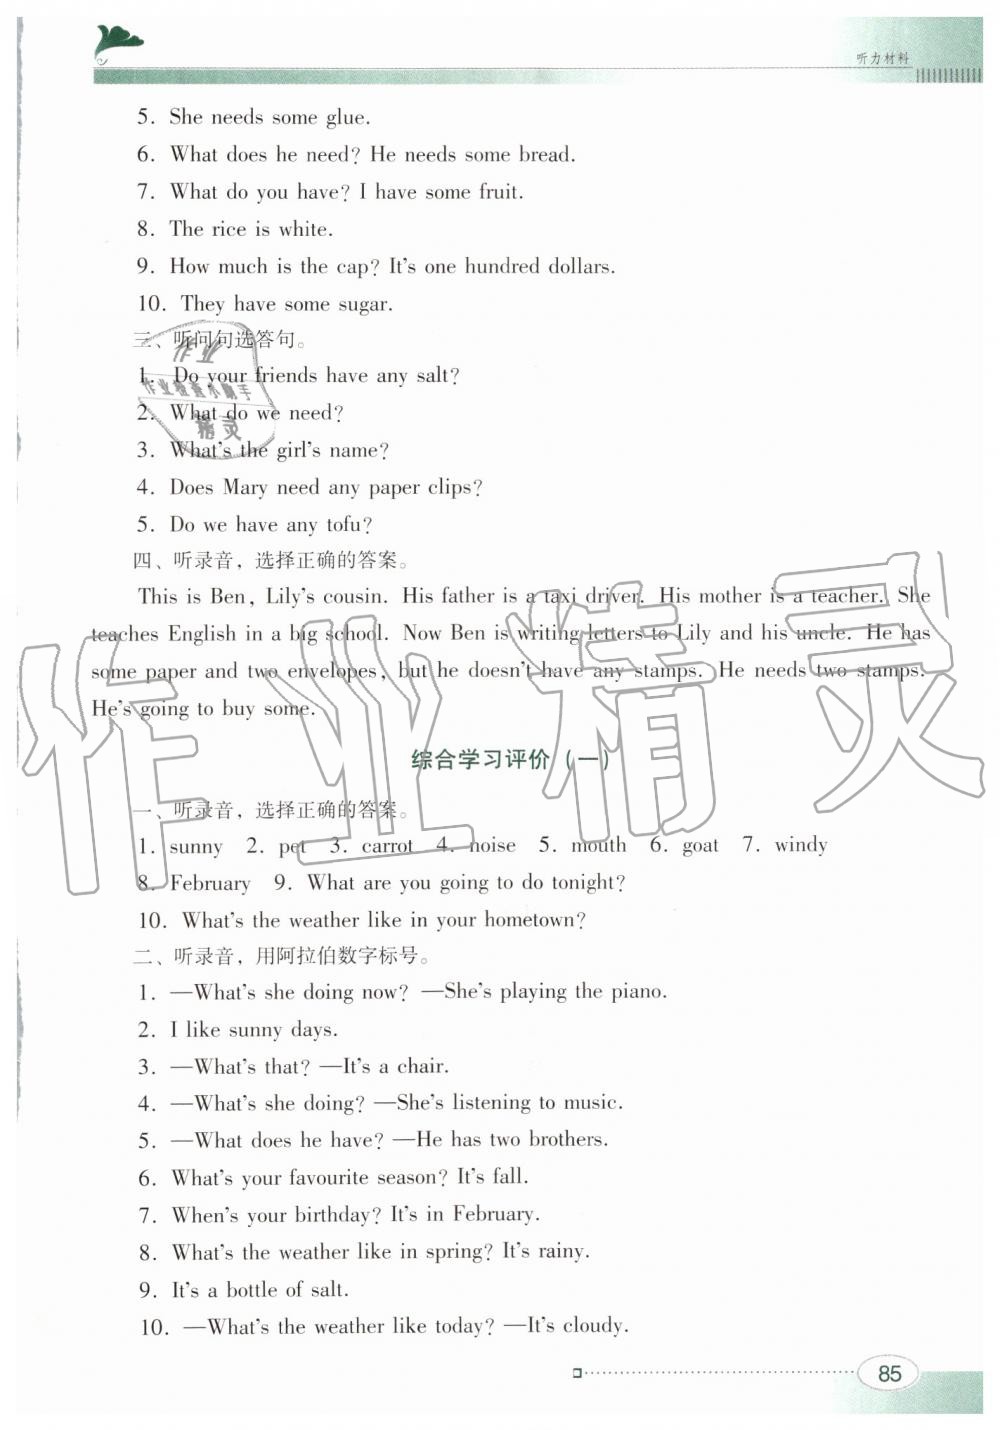 听力材料
5. She needs some glue.
6. What does he need? He needs some bread.
7. What do you have? I have some fruit.
8. The rice is white.
9. How much is the cap? It's one hundred dollars.
10. They have some sugar.
三、听问句选答句。
1. Do your friends have any salt?
2. What do we need?
3. What's the girl's name?
4. Does Mary need any paper clips?
5. Do we have any tofu?
四、听录音，选择正确的答案。
This is Ben, Lily's cousin. His father is a taxi driver. His mother is a teacher. She
teaches English in a big school. Now Ben is writing letters to Lily and his uncle. He has
some paper and two envelopes, but he doesn't have any stamps. He needs two stamps.
He's going to buy some.
综合学习评价（一）
一、听录音，选择正确的答案。
1. sunny 2. pet 3. carrot 4. noise 5. mouth 6. goat 7. windy
8. February 9. What are you going to do tonight?
10. What's the weather like in your hometown?
二、听录音，用阿拉伯数字标号。
1. —What's she doing now? —She's playing the piano.
2. I like sunny days.
3. —What's that? —It's a chair.
4. —What's she doing? —She's listening to music.
5. —What does he have? —He has two brothers.
6. What's your favourite season? It's fall.
7. When's your birthday? It's in February.
8. What's the weather like in spring? It's rainy.
9. It's a bottle of salt.
10. —What's the weather like today? —It's cloudy.
85
作业精灵
作业检查小助手
精灵